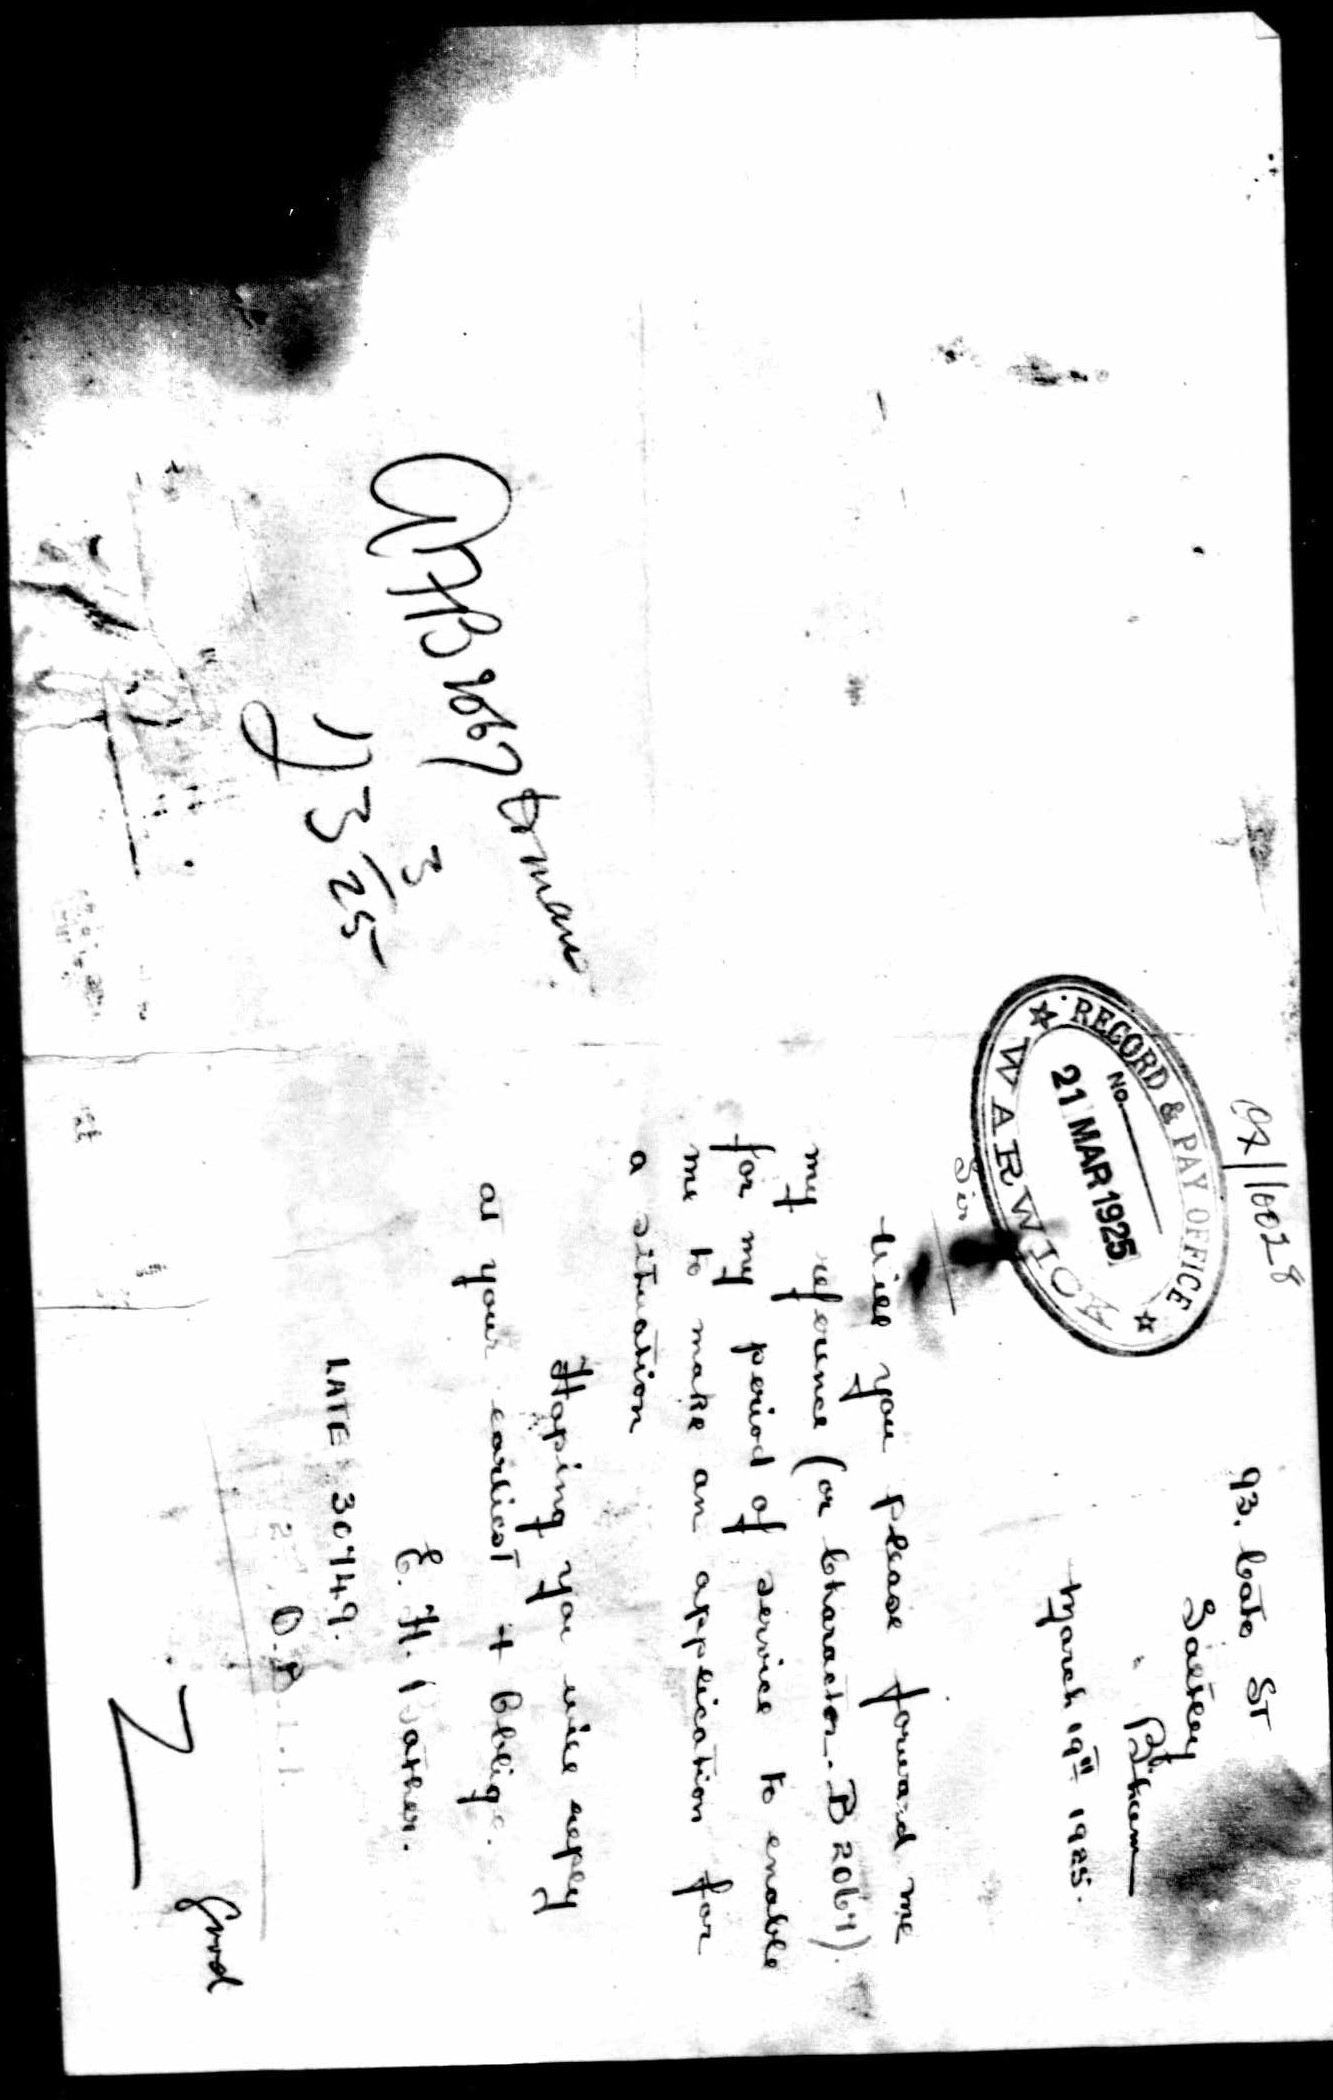 OX/10028
93. Cato ST
Saltley
" B'ham
March 19th 1925.
RECORD & PAY OFFICE
No.
21 MAR 1925
WARWICK
Sir
Will you please forward me
my reference (or Character. B 2067)
for my period of service to enable
me to make an application for
a situation
Hoping you will reply
at your earliest + Oblige.
E. H.
LATE 30749.
Good
AFB 2067 to man
3 3/25